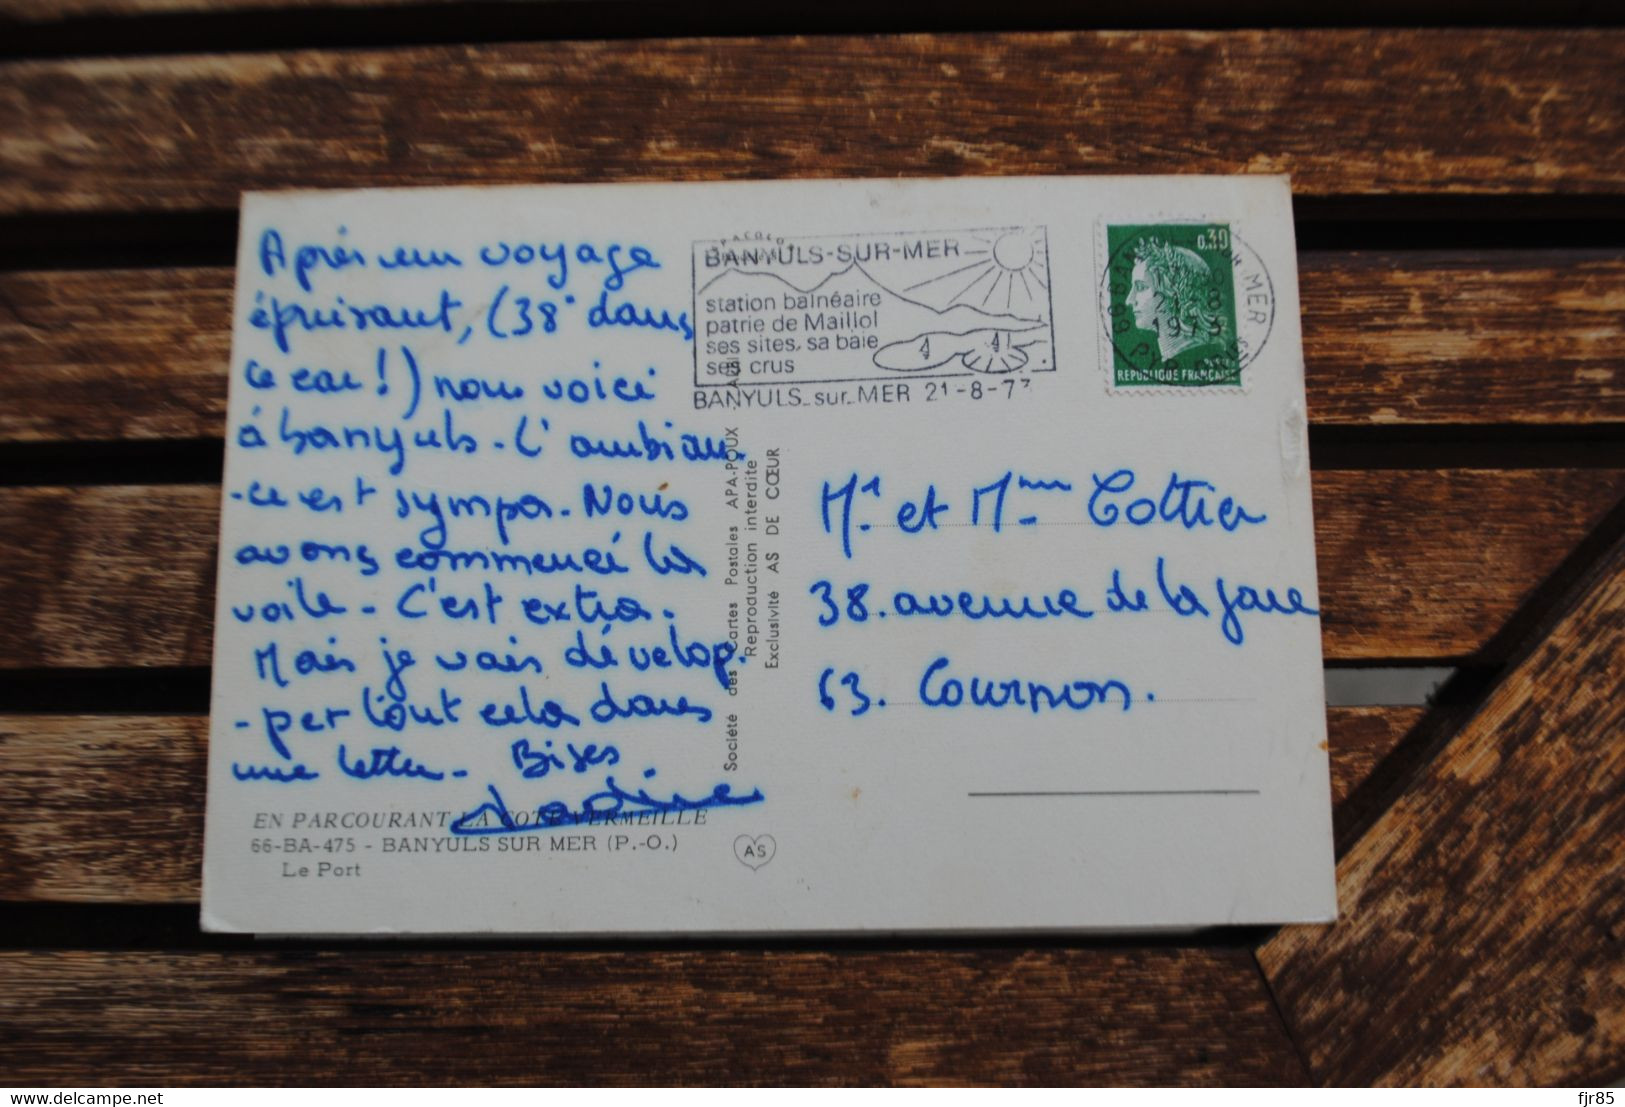 Après un voyage
épuisant, (38° dans
le car !) nous voici
à banyuls - L'ambian-
-ce est sympa. Nous
avons commencé la
voile - C'est extra.
Mais je vais dévelop-
-per tout cela dans
une lettre - Bises
Nadine
EN PARCOURANT LA COTE VERMEILLE
66-BA-475 - BANYULS SUR MER (P.-O.)
Le Port
AS
Société des Cartes Postales APA-POUX - ALBI
Reproduction interdite
Exclusivité AS DE CŒUR
BANYULS-SUR-MER
station balnéaire
patrie de Maillol
ses sites, sa baie
ses crus
BANYULS sur MER 21-8-73
0,30
REPUBLIQUE FRANÇAISE
21 8
1973
Mr et Mme Cottier
38. avenue de la gare
63. Cournon.
fjr85